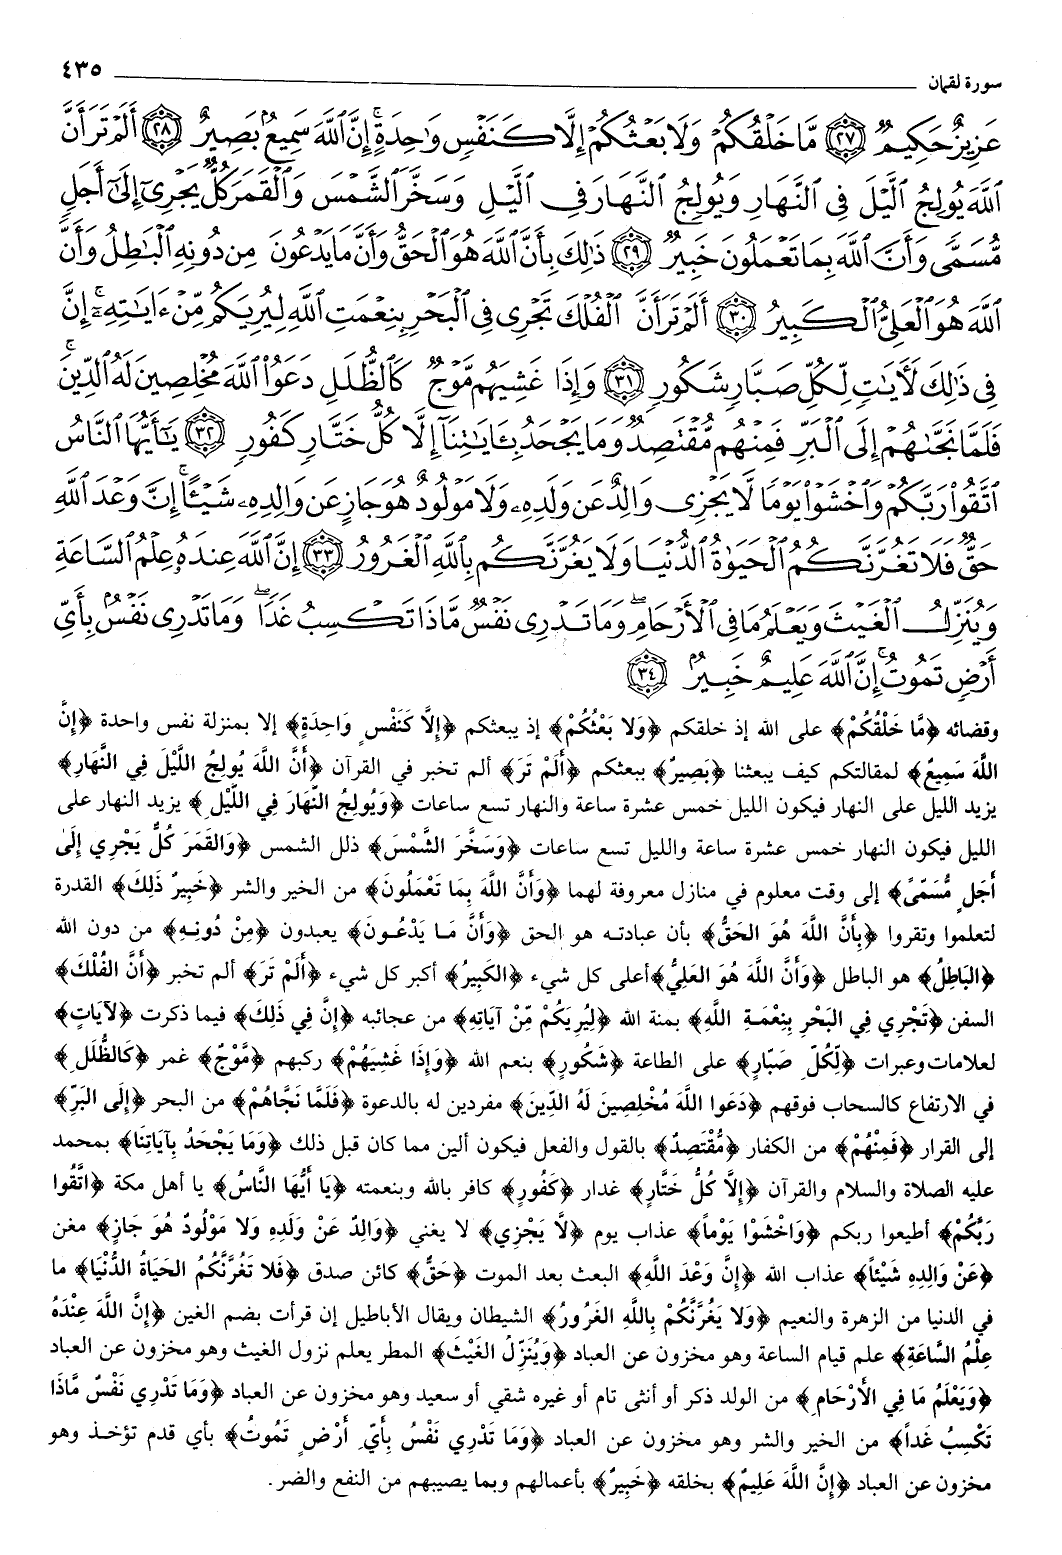 سورة لقمان ٤٣٥
عَزِيزٌ حَكِيمٌ ٢٧ مَّا خَلْقُكُمْ وَلَا بَعْثُكُمْ إِلَّا كَنَفْسٍ وَٰحِدَةٍ ۗ إِنَّ ٱللَّهَ سَمِيعٌۢ بَصِيرٌ ٢٨ أَلَمْ تَرَ أَنَّ
ٱللَّهَ يُولِجُ ٱلَّيْلَ فِى ٱلنَّهَارِ وَيُولِجُ ٱلنَّهَارَ فِى ٱلَّيْلِ وَسَخَّرَ ٱلشَّمْسَ وَٱلْقَمَرَ كُلٌّ يَجْرِىٓ إِلَىٰٓ أَجَلٍ
مُّسَمًّى وَأَنَّ ٱللَّهَ بِمَا تَعْمَلُونَ خَبِيرٌ ٢٩ ذَٰلِكَ بِأَنَّ ٱللَّهَ هُوَ ٱلْحَقُّ وَأَنَّ مَا يَدْعُونَ مِن دُونِهِ ٱلْبَٰطِلُ وَأَنَّ
ٱللَّهَ هُوَ ٱلْعَلِىُّ ٱلْكَبِيرُ ٣٠ أَلَمْ تَرَ أَنَّ ٱلْفُلْكَ تَجْرِى فِى ٱلْبَحْرِ بِنِعْمَتِ ٱللَّهِ لِيُرِيَكُم مِّنْ ءَايَٰتِهِۦٓ ۚ إِنَّ
فِى ذَٰلِكَ لَءَايَٰتٍ لِّكُلِّ صَبَّارٍ شَكُورٍ ٣١ وَإِذَا غَشِيَهُم مَّوْجٌ كَٱلظُّلَلِ دَعَوُا۟ ٱللَّهَ مُخْلِصِينَ لَهُ ٱلدِّينَ
فَلَمَّا نَجَّىٰهُمْ إِلَى ٱلْبَرِّ فَمِنْهُم مُّقْتَصِدٌ ۚ وَمَا يَجْحَدُ بِـَٔايَٰتِنَآ إِلَّا كُلُّ خَتَّارٍ كَفُورٍ ٣٢ يَٰٓأَيُّهَا ٱلنَّاسُ
ٱتَّقُوا۟ رَبَّكُمْ وَٱخْشَوْا۟ يَوْمًا لَّا يَجْزِى وَالِدٌ عَن وَلَدِهِۦ وَلَا مَوْلُودٌ هُوَ جَازٍ عَن وَالِدِهِۦ شَيْـًٔا ۚ إِنَّ وَعْدَ ٱللَّهِ
حَقٌّ ۖ فَلَا تَغُرَّنَّكُمُ ٱلْحَيَوٰةُ ٱلدُّنْيَا وَلَا يَغُرَّنَّكُم بِٱللَّهِ ٱلْغَرُورُ ٣٣ إِنَّ ٱللَّهَ عِندَهُۥ عِلْمُ ٱلسَّاعَةِ
وَيُنَزِّلُ ٱلْغَيْثَ وَيَعْلَمُ مَا فِى ٱلْأَرْحَامِ ۖ وَمَا تَدْرِى نَفْسٌ مَّاذَا تَكْسِبُ غَدًا ۖ وَمَا تَدْرِى نَفْسٌۢ بِأَىِّ
أَرْضٍ تَمُوتُ ۚ إِنَّ ٱللَّهَ عَلِيمٌ خَبِيرٌۢ ٣٤
وقضائه ﴿مَّا خَلْقُكُمْ﴾ على الله إذ خلقكم ﴿وَلا بَعْثُكُمْ﴾ إذ يبعثكم ﴿إِلَّا كَنَفْسٍ وَاحِدَةٍ﴾ إلا بمنزلة نفس واحدة ﴿إِنَّ
اللَّهَ سَمِيعٌ﴾ لمقالتكم كيف يبعثنا ﴿بَصِيرٌ﴾ ببعثكم ﴿أَلَمْ تَرَ﴾ ألم تخبر في القرآن ﴿أَنَّ اللَّهَ يُولِجُ اللَّيْلَ فِي النَّهَارِ﴾
يزيد الليل على النهار فيكون الليل خمس عشرة ساعة والنهار تسع ساعات ﴿وَيُولِجُ النَّهَارَ فِي اللَّيْلِ﴾ يزيد النهار على
الليل فيكون النهار خمس عشرة ساعة والليل تسع ساعات ﴿وَسَخَّرَ الشَّمْسَ﴾ ذلل الشمس ﴿وَالقَمَرَ كُلٌّ يَجْرِي إِلَى
أَجَلٍ مُّسَمًّى﴾ إلى وقت معلوم في منازل معروفة لهما ﴿وَأَنَّ اللَّهَ بِمَا تَعْمَلُونَ﴾ من الخير والشر ﴿خَبِيرٌ ذَلِكَ﴾ القدرة
لتعلموا وتقروا ﴿بِأَنَّ اللَّهَ هُوَ الحَقُّ﴾ بأن عبادته هو الحق ﴿وَأَنَّ مَا يَدْعُونَ﴾ يعبدون ﴿مِنْ دُونِهِ﴾ من دون الله
﴿البَاطِلُ﴾ هو الباطل ﴿وَأَنَّ اللَّهَ هُوَ العَلِيُّ﴾أعلى كل شيء ﴿الكَبِيرُ﴾ أكبر كل شيء ﴿أَلَمْ تَرَ﴾ ألم تخبر ﴿أَنَّ الفُلْكَ﴾
السفن ﴿تَجْرِي فِي البَحْرِ بِنِعْمَةِ اللَّهِ﴾ بمنة الله ﴿لِيُرِيَكُمْ مِّنْ آيَاتِهِ﴾ من عجائبه ﴿إِنَّ فِي ذَلِكَ﴾ فيما ذكرت ﴿لآيَاتٍ﴾
لعلامات وعبرات ﴿لِكُلِّ صَبَّارٍ﴾ على الطاعة ﴿شَكُورٍ﴾ بنعم الله ﴿وَإِذَا غَشِيَهُمْ﴾ ركبهم ﴿مَّوْجٌ﴾ غمر ﴿كَالظُّلَلِ﴾
في الارتفاع كالسحاب فوقهم ﴿دَعَوا اللَّهَ مُخْلِصِينَ لَهُ الدِّينَ﴾ مفردين له بالدعوة ﴿فَلَمَّا نَجَّاهُمْ﴾ من البحر ﴿إِلَى البَرِّ﴾
إلى القرار ﴿فَمِنْهُمْ﴾ من الكفار ﴿مُّقْتَصِدٌ﴾ بالقول والفعل فيكون ألين مما كان قبل ذلك ﴿وَمَا يَجْحَدُ بِآيَاتِنَا﴾ بمحمد
عليه الصلاة والسلام والقرآن ﴿إِلَّا كُلُّ خَتَّارٍ﴾ غدار ﴿كَفُورٍ﴾ كافر بالله وبنعمته ﴿يَا أَيُّهَا النَّاسُ﴾ يا أهل مكة ﴿اتَّقُوا
رَبَّكُمْ﴾ أطيعوا ربكم ﴿وَاخْشَوْا يَوْماً﴾ عذاب يوم ﴿لَّا يَجْزِي﴾ لا يغني ﴿وَالِدٌ عَنْ وَلَدِهِ وَلا مَوْلُودٌ هُوَ جَازٍ﴾ مغن
﴿عَنْ وَالِدِهِ شَيْئاً﴾ عذاب الله ﴿إِنَّ وَعْدَ اللَّهِ﴾ البعث بعد الموت ﴿حَقٌّ﴾ كائن صدق ﴿فَلا تَغُرَّنَّكُمُ الحَيَاةُ الدُّنْيَا﴾ ما
في الدنيا من الزهرة والنعيم ﴿وَلا يَغُرَّنَّكُمْ بِاللَّهِ الغَرُورُ﴾ الشيطان ويقال الأباطيل إن قرأت بضم الغين ﴿إِنَّ اللَّهَ عِنْدَهُ
عِلْمُ السَّاعَةِ﴾ علم قيام الساعة وهو مخزون عن العباد ﴿وَيُنَزِّلُ الغَيْثَ﴾ المطر يعلم نزول الغيث وهو مخزون عن العباد
﴿وَيَعْلَمُ مَا فِي الأَرْحَامِ﴾ من الولد ذكر أو أنثى تام أو غيره شقي أو سعيد وهو مخزون عن العباد ﴿وَمَا تَدْرِي نَفْسٌ مَّاذَا
تَكْسِبُ غَداً﴾ من الخير والشر وهو مخزون عن العباد ﴿وَمَا تَدْرِي نَفْسُ بِأَيِّ أَرْضٍ تَمُوتُ﴾ بأي قدم تؤخذ وهو
مخزون عن العباد ﴿إِنَّ اللَّهَ عَلِيمٌ﴾ بخلقه ﴿خَبِيرٌ﴾ بأعمالهم وبما يصيبهم من النفع والضر.